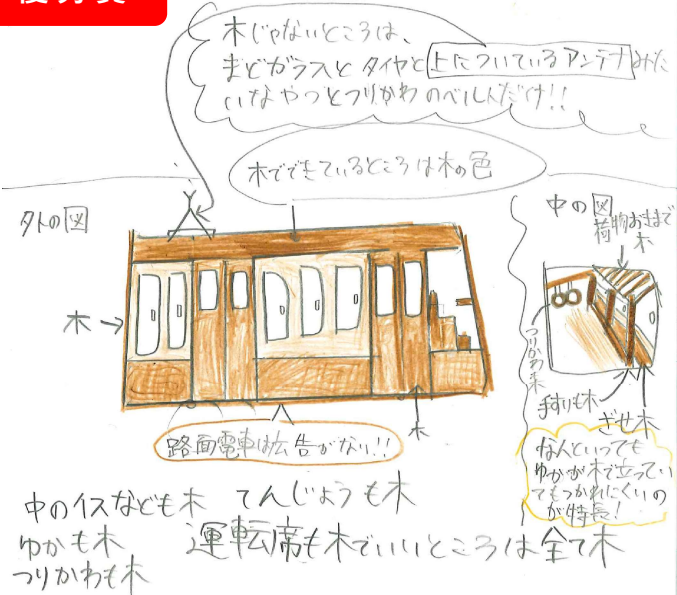 優秀賞
木じゃないところは、
まどガラスとタイヤと上についているアンテナみた
いなやつとつりかわのベルトだけ!!
木でできているところは木の色
外の図
木
木
路面電車は広告がない!!
中の図
荷物おきまで
木
つりかわ木
手すりも木
ざせき木
なんといっても
ゆかが木で立ってい
てもつかれにくいの
が特長!
中のイスなども木 てんじょうも木
ゆかも木 運転席も木でいいところは全て木
つりかわも木